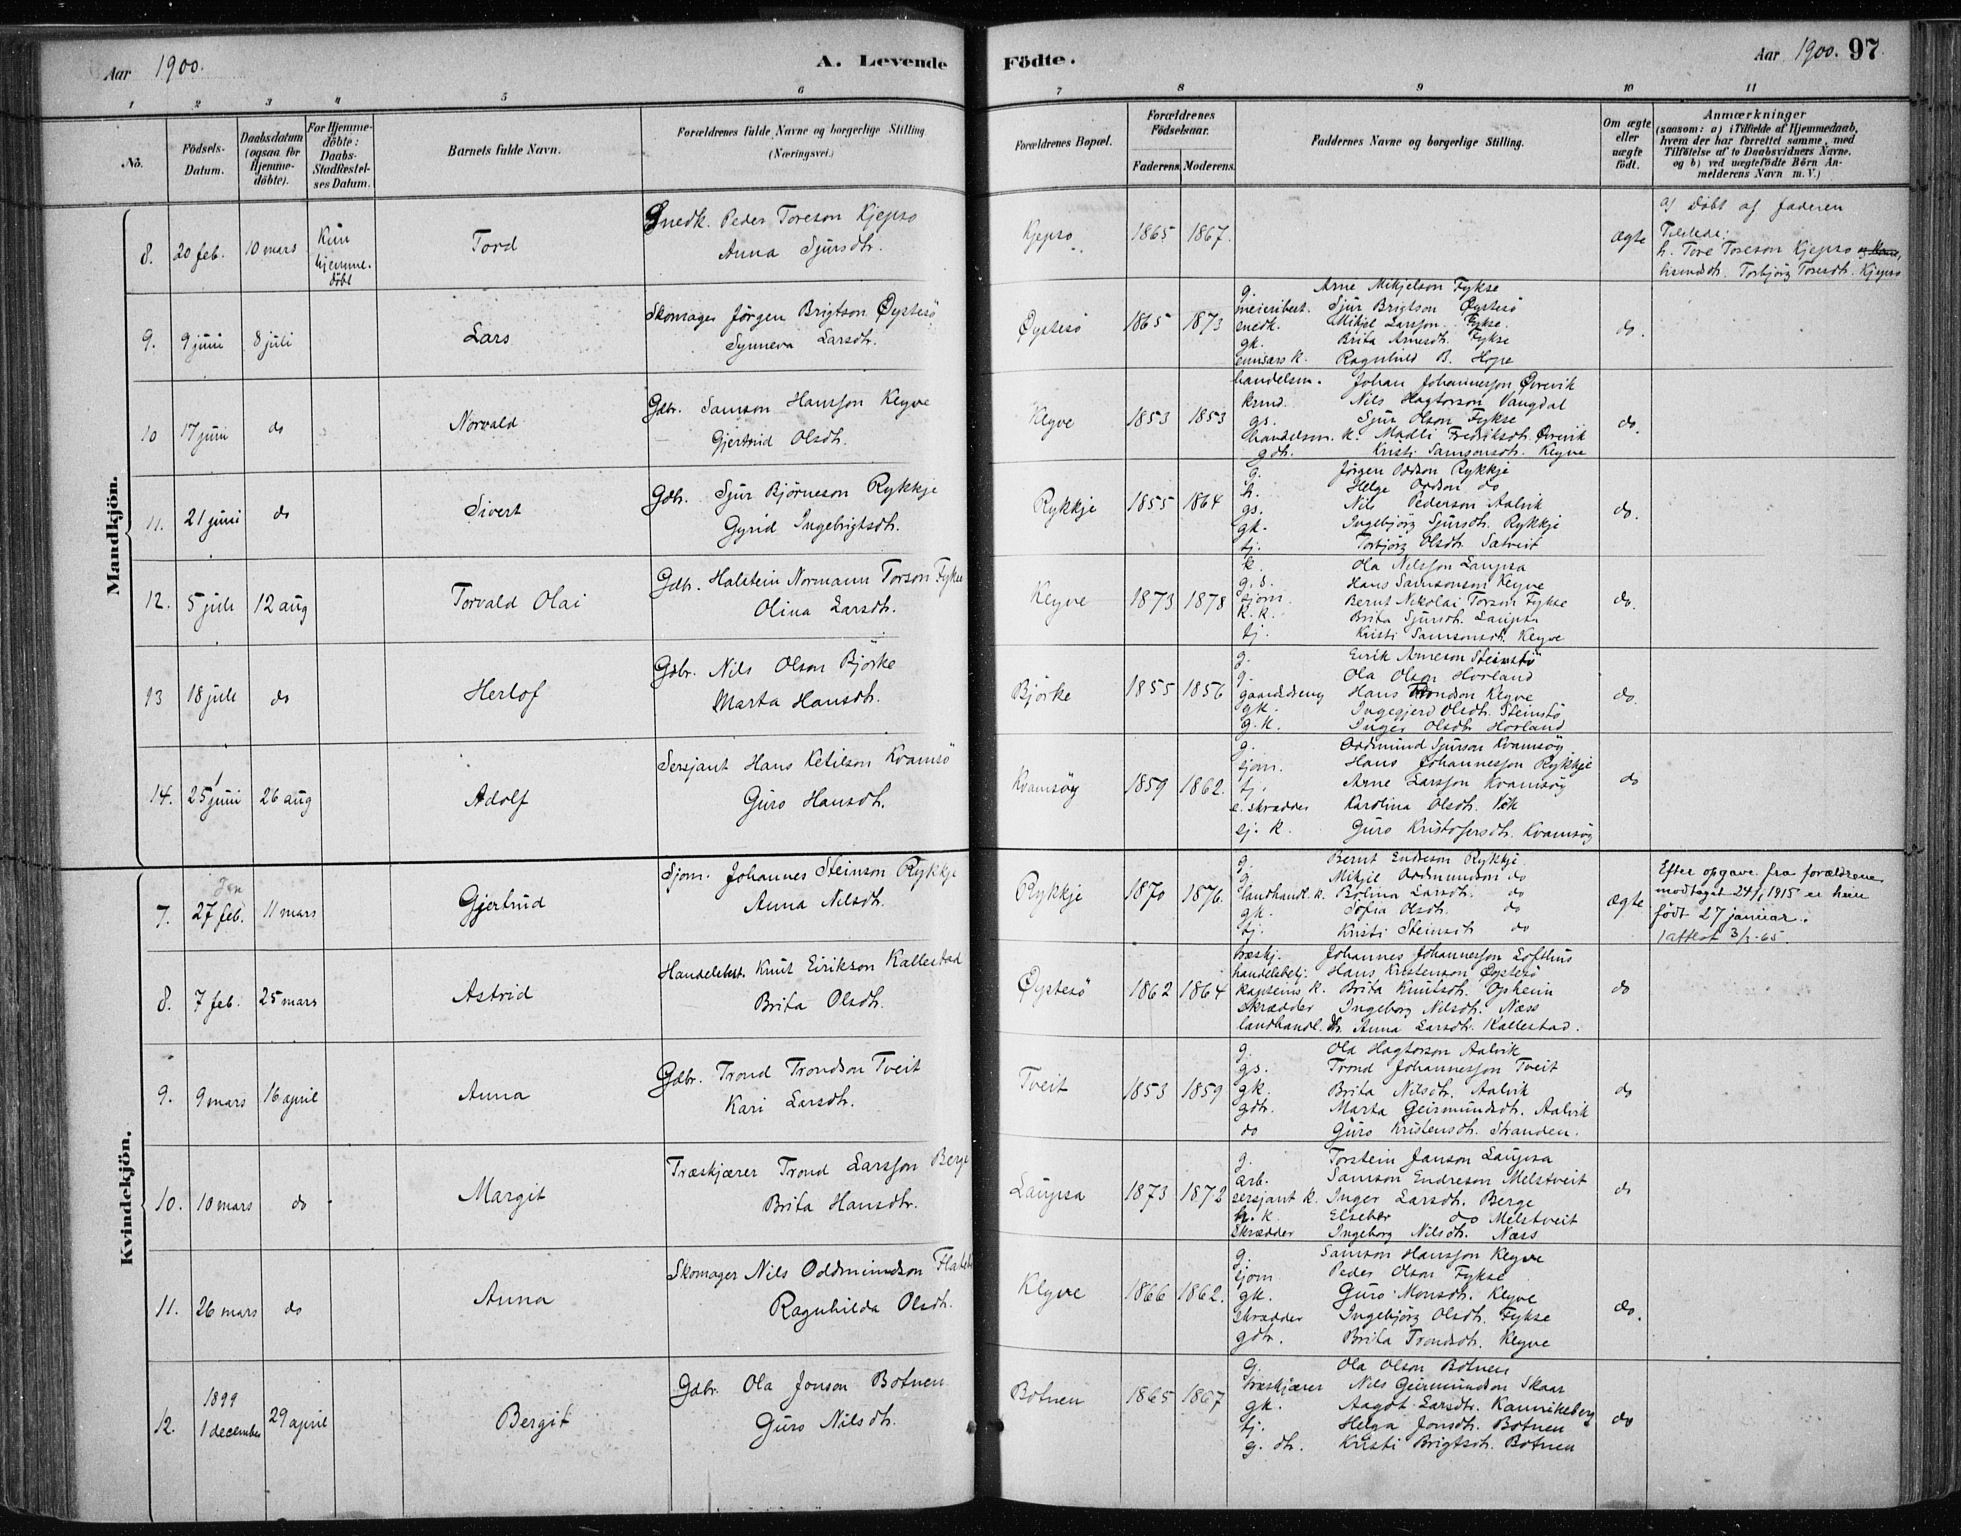 Aar 1900.
A. Levende
Födte.
Aar 1900. 97
1 2 3 4 5 6 7 8 9 10 11
No.
Födsels-Datum.
Daabsdatum (ogsaa for Hjemme-döbte).
For Hjemme-döbte: Daabs-Stadfæstel-ses Datum.
Barnets fulde Navn.
Forældrenes fulde Navne og borgerlige Stilling (Næringsvei.)
Forældrenes Bopæl.
Forældrenes Födselsaar.
Faderens. Moderens.
Faddernes Navne og borgerlige Stilling.
Om ægte eller uægte födt.
Anmærkninger
(saasom: a) i Tilfælde af Hjemmedaab, hvem der har forrettet samme, med Tilföielse af to Daabsvidners Navne, og b) ved uægtefödte Börn An-melderens Navn m. V.)
Mandkjön.
8. 20 feb. 10 mars Kun hjemme-döbt Tord
Snedk. Peder Toreson Kjepso
Anna Sjursdtr.
Kjepso 1865 1867. ægte
a) Döbt af faderen
Tilstede:
h. Tore Toreson Kjepso
Torbjörg Toresdt. Kjepso
9. 9 juni 8 juli Lars
Skomager Jörgen Brigtson Öystesö
Synneva Larsdtr.
Öystesö 1865 1873 do.
g. Arne Mikjelson Fykse
meieribest. Sjur Brigtson Öystesö
snedk. Mikjel Larsson Fykse.
gk. Brita Arnesdtr. Fykse
Ragnhild B. Hope
10 17 juni do Norvald
Gdbr. Samson Hansson Klyve
Gjertrud Olsdtr.
Klyve 1853 1853 do.
handelsm. Johan Johannesson Övrevik
Nils Hagtorson Vangdal
gs. Sjur Olson Fykse
handelsm. k. Madli Fredriksdtr. Övrevik
gdtr. Kristi Samsonsdtr. Klyve
11. 21 juni do Sivert
Gdbr. Sjur Björneson Rykkje
Gyrid Ingebrigtsdtr.
Rykkje 1855 1864 do.
g. Jörgen Oddson Rykkje
h. Helge Oddson do
gs. Nils Pederson Aalvik
gk. Ingebjörg Sjursdtr. Rykkje
tj. Torbjörg Olsdtr. Satveit
12. 5 juli 12 aug Torvald Olai
Gdbr. Halstein Normann Torson Fykse
Olina Larsdtr.
Klyve 1873 1878 do.
k. Ola Nilsson Laupsa
g. s. Hans Samsonson Klyve
sjom. Bernt Nikolai Torson Fykse
k. k. Brita Sjursdtr. Laupsa
tj. Kristi Samsonsdtr. Klyve
13 18 juli do Herlof
Gdbr. Nils Olson Björke
Marta Hansdtr.
Björke 1855 1856 do.
g. Eirik Arneson Steinstö
g. Ola Olson Horland
gaardsdreng Hans Trondson Klyve
gk. Ingegjerd Olsdtr. Steinstö
g.k. Inger Olsdtr. Horland
14. 25 juni 26 aug Adolf
Sersjant Hans Ketilson Kvamsö
Guro Hansdtr.
Kvamsöy 1859 1862. do
g. Oddmund Sjurson Kvamsöy
sjom. Hans Johannesson Rykkje
tj. Arne Larsson Kvamsöy
e. skrædder Karolina Olsdtr. Vik
sj. k. Guro Kristofersdtr. Kvamsöy
Kvindekjön.
7. Jan 27 feb. 11 mars Gjertrud
Sjom. Johannes Steinson Rykkje
Anna Nilsdtr.
Rykkje 1870 1876. ægte
g. Bernt Endreson Rykkje
g. Mikjel Oddmundson do
landhandl. k. Bolina Larsdtr. do
gk. Sofia Olsdtr. do
tj. Kristi Steinsdt do
Efter opgave fra forældrene
modtaget 24/1 1915 er hun
födt 27 januar.
1 attest 3/3-65.
8. 7 feb. 25 mars Astrid
Handelsbest. Knut Eirikson Kallestad
Brita Olsdtr.
Öystesö 1862 1864 do
træskj. Johannes Johannesson Lofthus
handelsbetj. Hans Kristenson Öystesö
kapteins k. Brita Knutsdtr. Opheim
skrædder Ingeborg Nilsdtr. Næss
landhandl. dtr. Anna Larsdtr. Kallestad.
9. 9 mars 16 april Anna
Gdbr. Trond Trondson Tveit
Kari Larsdtr.
Tveit 1853 1859 do
g. Ola Hagtorson Aalvik
gs. Trond Johannesson Tveit
gk. Brita Nilsdtr. Aalvik
gdtr. Marta Geirmundsdtr. Aalvik
do Guro Kristensdtr. Stranden.
10. 10 mars do Margit
Træskjærer Trond Larsson Berge
Brita Hansdtr.
Laupsa 1873 1872 do
g. Torstein Janson Laupsa
arb. Samson Endreson Melstveit
sersjant k. Inger Larsdtr. Berge
h. k. Elsebær do Melstveit
skrædder Ingeborg Nilsdtr. Næss
11. 26 mars do Anna
Skomager Nils Oddmundson
Ragnhilda Olsdtr.
Klyve 1866 1862. do.
g. Samson Hansson Klyve
sjom Peder Olson Fykse
gk. Guro Monsdtr. Klyve
skrædder Ingebjörg Olsdtr. Fykse
gdtr. Brita Trondsdtr. Klyve
12. 1899 1 december 29 april Bergit
Gdbr. Ola Jonson Botnen
Guro Nilsdtr.
Botnen 1865 1867 do
g. Ola Olson Botnen
træskjærer Nils Geirmundson Skaar
gk. Aagot Larsdtr. Kannikeberg
tj. Helga Jonsdtr. Botnen
g. dtr. Kristi Brigtsdtr. Botnen